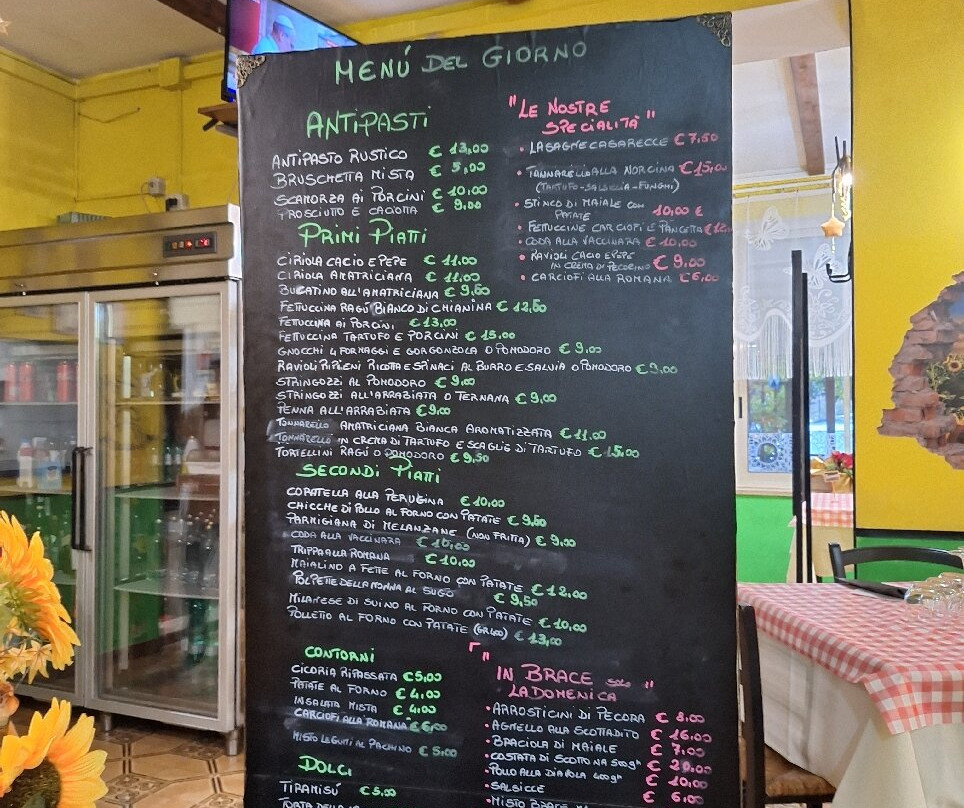 MENÚ DEL GIORNO
ANTIPASTI
ANTIPASTO RUSTICO € 13,00
BRUSCHETTA MISTA € 5,00
SCAMORZA AI PORCINI € 10,00
PROSCIUTTO E CACIOTTA € 9,00
PRIMI PIATTI
CIRIOLA CACIO E PEPE € 11,00
CIRIOLA AMATRICIANA € 11,00
BUCATINO ALL'AMATRICIANA € 9,50
FETTUCCINA RAGÙ BIANCO DI CHIANINA € 12,50
FETTUCCINA AI PORCINI € 13,00
FETTUCCINA TARTUFO E PORCINI € 15,00
GNOCCHI 4 FORMAGGI E GORGONZOLA O POMODORO € 9,00
RAVIOLI RIPIENI RICOTTA E SPINACI AL BURRO E SALVIA O POMODORO € 9,00
STRINGOZZI AL POMODORO € 9,00
STRINGOZZI ALL'ARRABIATA O TERNANA € 9,00
PENNA ALL'ARRABIATA € 9,00
TONNARELLO AMATRICIANA BIANCA AROMATIZZATA € 11,00
TONNARELLO IN CREMA DI TARTUFO E SCAGLIE DI TARTUFO € 15,00
TORTELLINI RAGÙ O POMODORO € 9,50
SECONDI PIATTI
CORATELLA ALLA PERUGINA € 10,00
CHICCHE DI POLLO AL FORNO CON PATATE € 9,50
PARMIGIANA DI MELANZANE (NON FRITTA) € 9,00
CODA ALLA VACCINARA € 10,00
TRIPPA ALLA ROMANA € 10,00
MAIALINO A FETTE AL FORNO CON PATATE € 12,00
POLPETTE DELLA NONNA AL SUGO € 9,50
MILANESE DI SUINO AL FORNO CON PATATE € 10,00
POLLETTO AL FORNO CON PATATE (GR400) € 13,00
CONTORNI
CICORIA RIPASSATA € 5,00
PATATE AL FORNO € 4,00
INSALATA MISTA € 4,00
CARCIOFI ALLA ROMANA € 6,00
MISTO LEGUMI AL PACHINO € 5,00
DOLCI
TIRAMISÚ € 5,00
TORTA DELLA
"LE NOSTRE
SPECIALITÀ"
• LASAGNE CASARECCE € 7,50
• TONNARELLO ALLA NORCINA € 15,00
(TARTUFO-SALSICCIA-FUNGHI)
• STINCO DI MAIALE CON
PATATE 10,00 €
• FETTUCCINE CARCIOFI E PANCETTA € 12,
• CODA ALLA VACCINARA € 10,00
• RAVIOLI CACIO E PEPE
IN CREMA DI PECORINO € 9,00
• CARCIOFI ALLA ROMANA € 6,00
"IN BRACE SOLO "
LA DOMENICA
• ARROSTICINI DI PECORA € 8,00
• AGNELLO ALLA SCOTTADITO € 16,00
• BRACIOLA DI MAIALE € 7,00
• COSTATA DI SCOTTONA 500gr € 20,00
• POLLO ALLA DIAVOLA 400gr € 10,00
• SALSICCE € 6,00
• MISTO BRACE